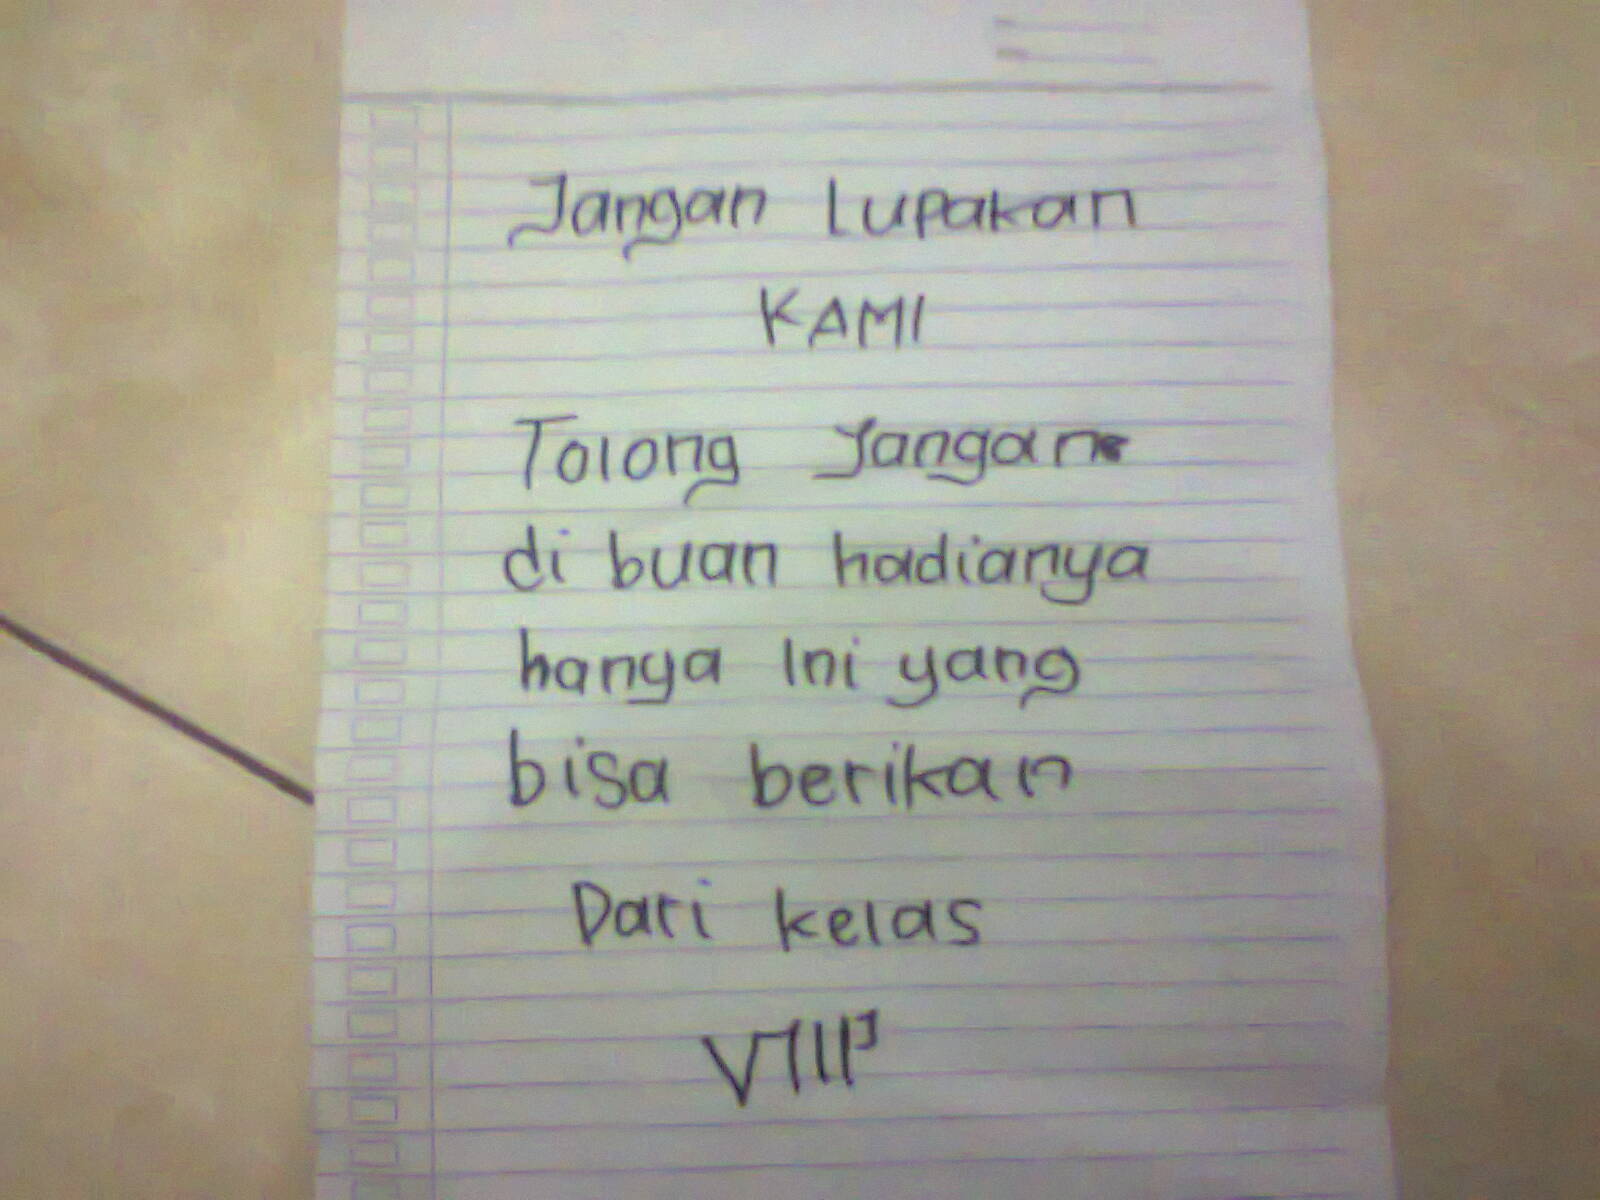 Jangan Lupakan
KAMI
Tolong Jangan
di buan hadianya
hanya Ini yang
bisa berikan
Dari kelas
VIII³